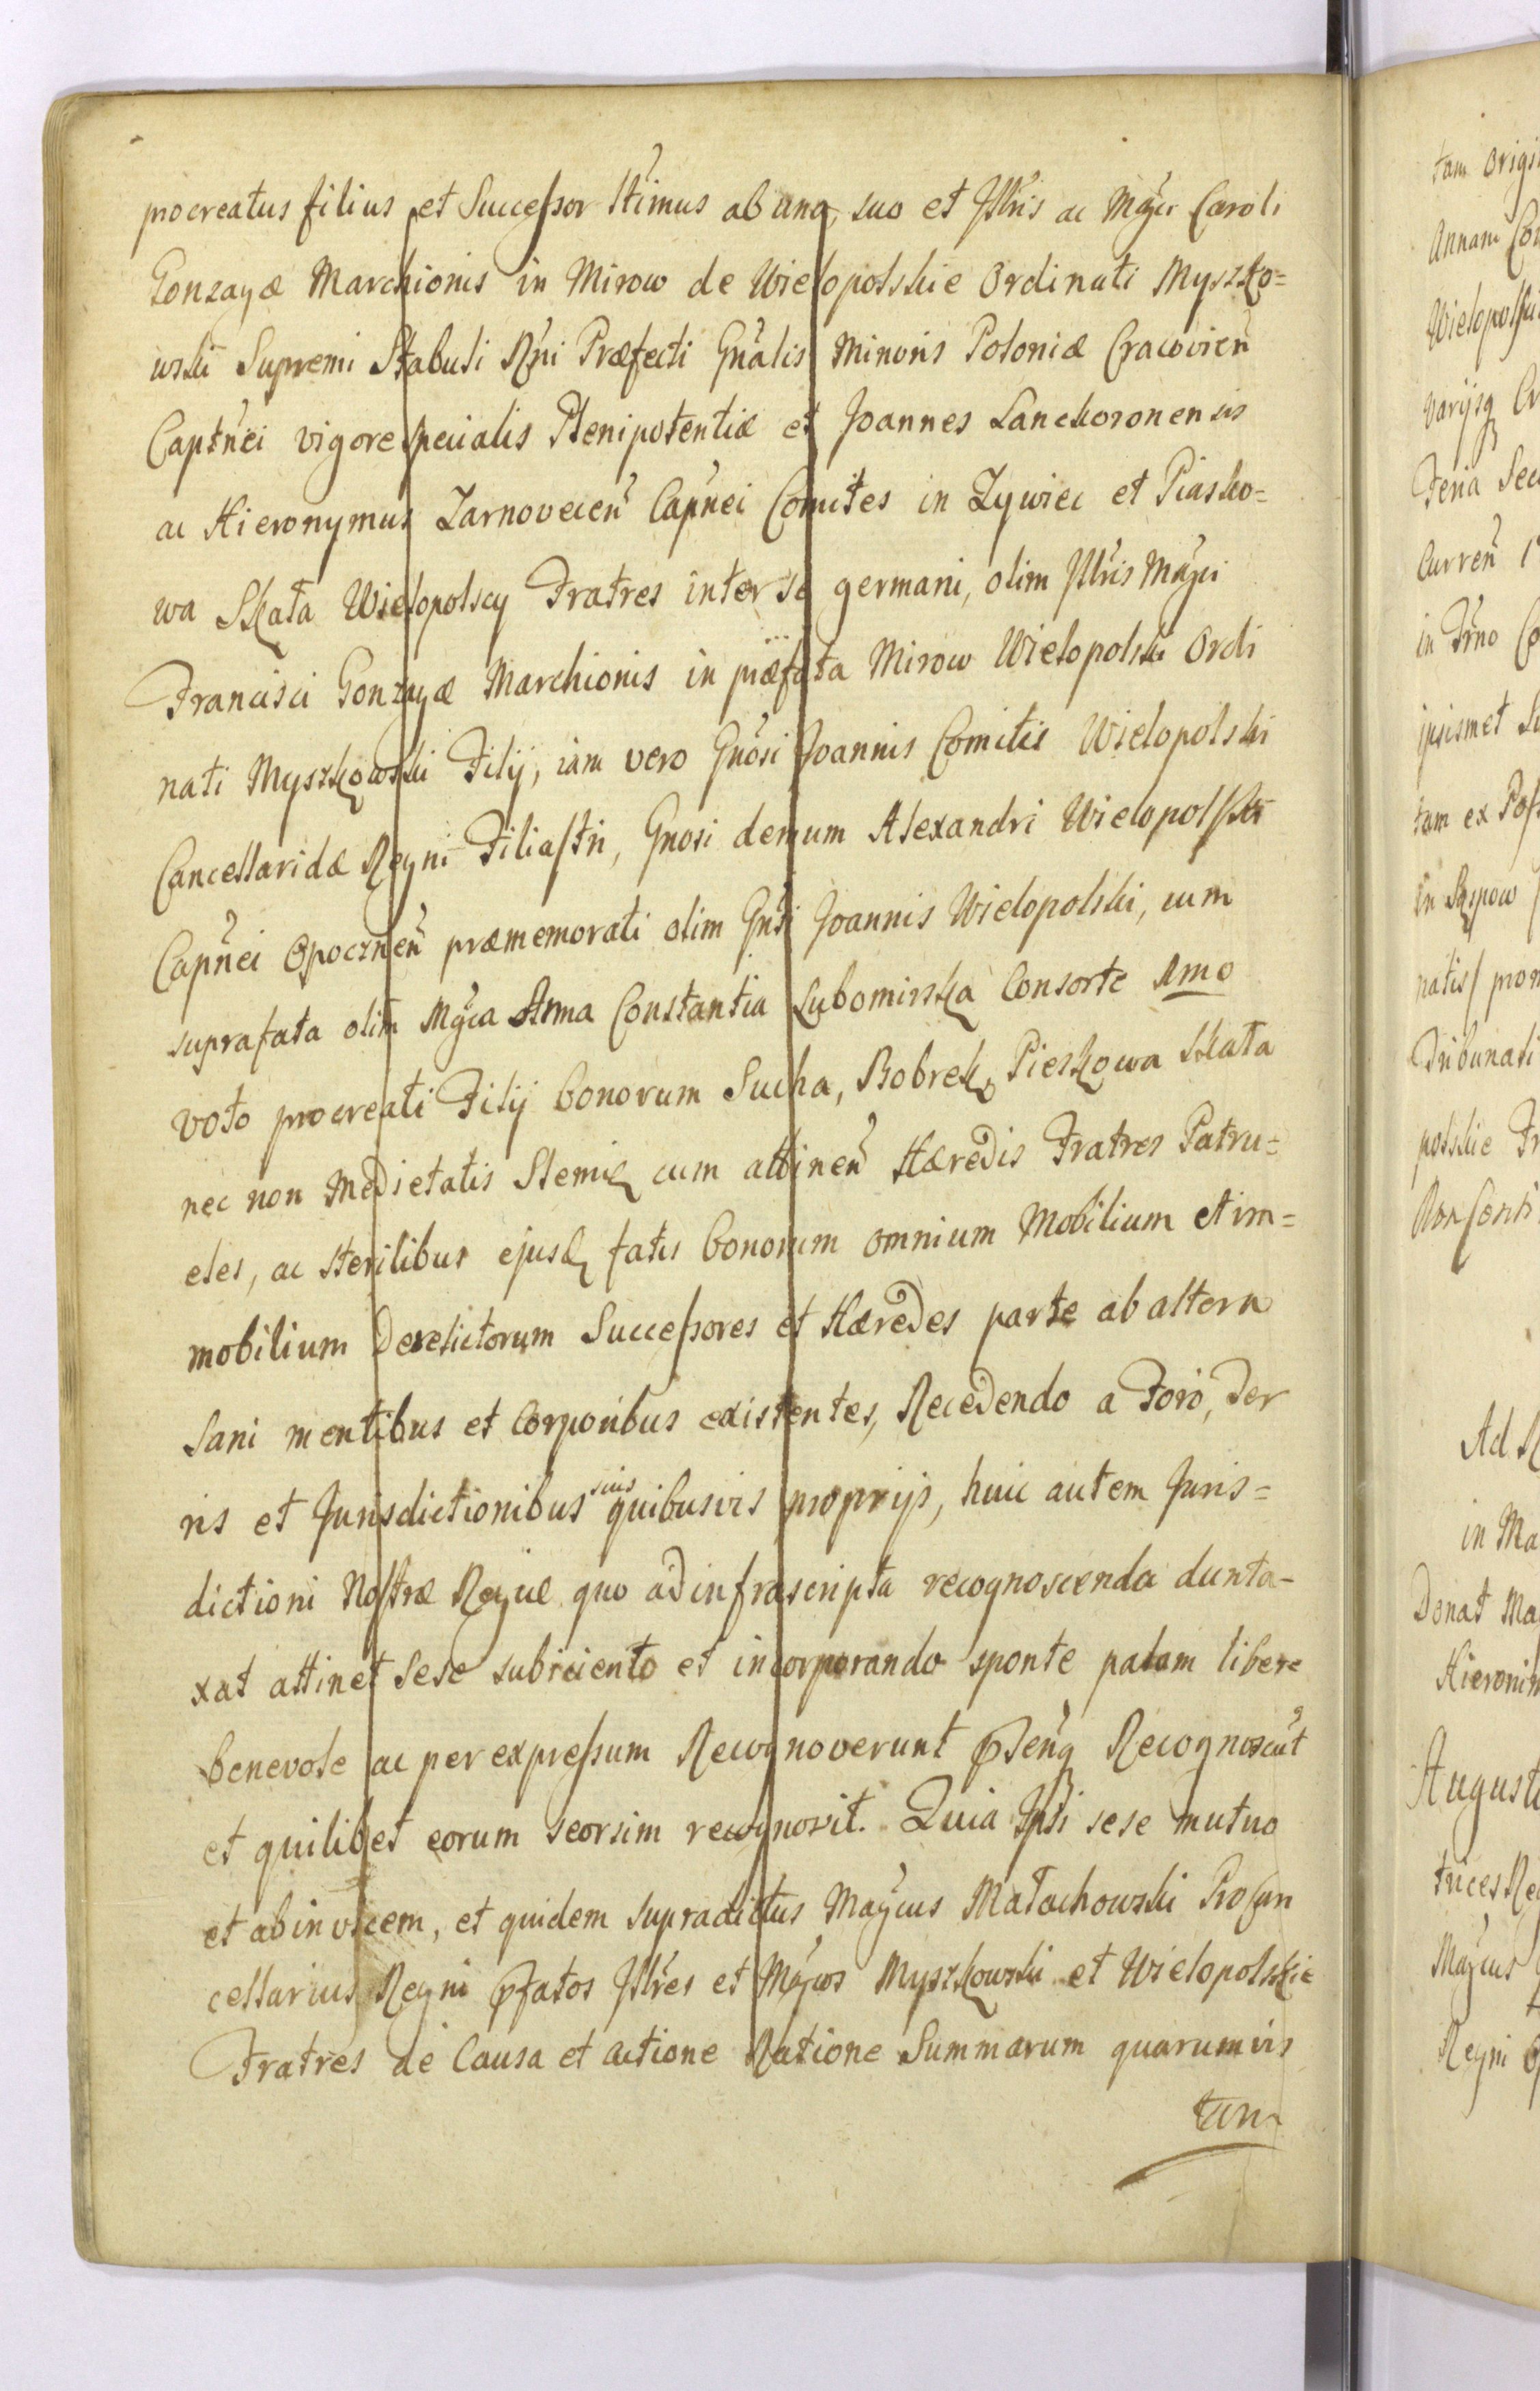 procreatus filius et Successor Ltimus ab una, suo et Jllris ac Mgci Caroli
Gonzagæ Marchionis in Mirow de Wielopolskie Ordinati Myszko=
wski Supremi Stabuli Rni Præfecti Gnalis Minoris Poloniæ Cracovien
Captnei vigore specialis Plenipotentiæ et Joannes Lanckoronensis
ac Hieronymus Zarnovecen Capnei Comites in Zywiec et Piasko=
wa Skała Wielopolscy Fratres inter se germani, olim Jllris Mgci
Francisci Gonzagæ Marchionis in præfata Mirow Wielopolski Ordi
nati Myszkowski Filij, iam vero Gnosi Joannis Comitis Wielopolski
Cancellaridæ Regni Filiastri, Gnosi demum Alexandri Wielopolski
Capnei Opocznen præmemorati olim Gnsi Joannis Wielopolski, cum
suprafata olim Mgca Anna Constantia Lubomirska Consorte Amo
voto procreati Filij bonorum Sucha, Bobrek, Pieskowa Skała
nec non Medietatis Slemię cum attinen Hæredis Fratres Patru=
eles, ac sterilibus ejusd fatis bonorum omnium Mobilium et im=
mobilium Derelictorum Successores et Hæredes parte ab altera
Sani mentibus et Corporibus existentes, Recedendo a Foro, Ter
ris et Jurisdictionibus suis quibusvis proprijs, huic autem Juris=
dictioni Nostræ Regiæ quo ad infrascripta recognoscenda dunta-
xat attinet sese subiciento et incorporando sponte palam libere
benevole ac per expressum Recognoverunt Psenq Recognoscut
et quilibet eorum seorsim recognovit. Quia Ipsi sese mutuo
et ab invicem, et quidem supradictus Magcus Małachowski Procan
cellarius Regni Pfatos Jllres et Mgcos Myszkowski et Wielopolskie
Fratres de Causa et actione Ratione Summarum quarumvis
tam
tam Origi
Annam Co
Wielopolski
varijsq Cr
Feria Sec
Curren 1
in Frno Co
ipsismet Su
tam ex Pos
in Sąspow
natis/ prom
Tribunali
polskie Fr
Ad R
in Ma
Donat Ma
Hieronim
August
trices Re
Magcus
Regni